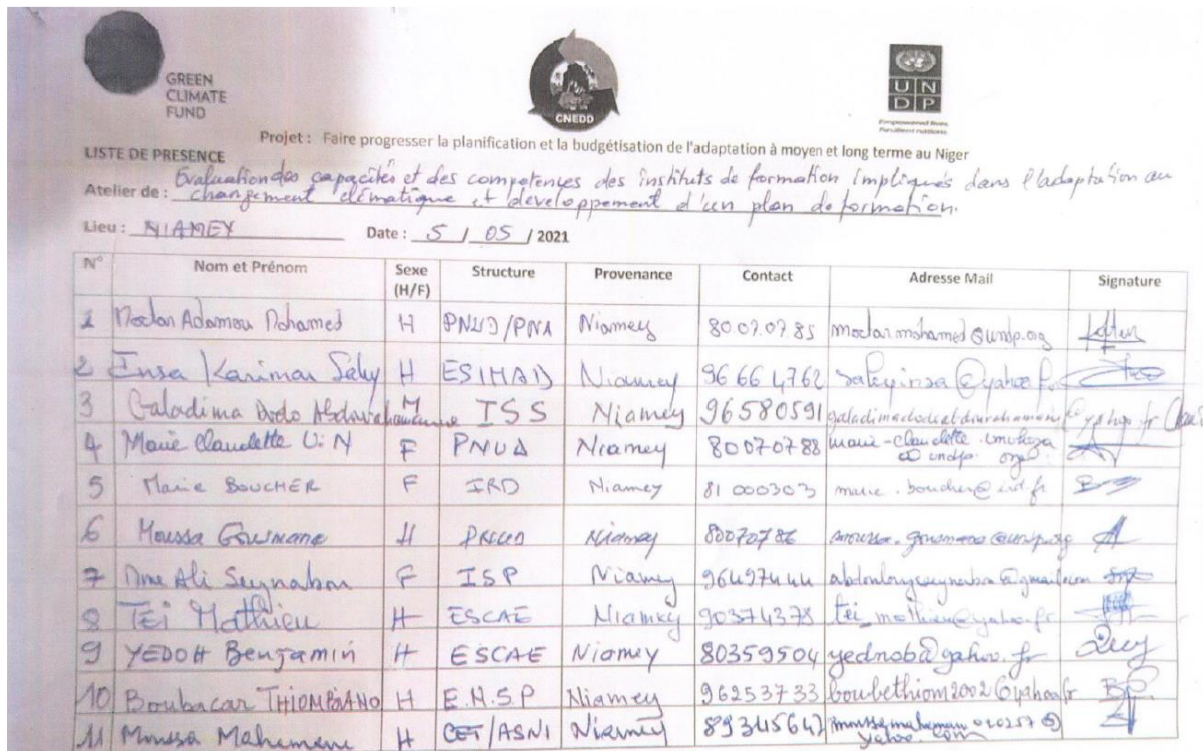 GREEN
CLIMATE
FUND
CNEDD
U N
D P
Empowered lives.
Resilient nations.
Projet : Faire progresser la planification et la budgétisation de l'adaptation à moyen et long terme au Niger
LISTE DE PRESENCE
Evaluation des capacités et des competences des instituts de formation impliqués dans l'adaptation au
Atelier de : changement climatique et developpement d'un plan de formation.
Lieu : NIAMEY Date : 5 / 05 / 2021
N° Nom et Prénom Sexe (H/F) Structure Provenance Contact Adresse Mail Signature
1 Moctar Adamou Mohamed H PNUD/PNA Niamey 80.07.07.85 moctar.mohamed@undp.org
2 Insa Karimou Saley H Niamey 96 66 47 62 saleyinsa@yahoo.fr
3 Galadima Dodo M ISS Niamey 96580591
4 Marie Claudette U.N F Niamey 80070788 marie-claudette.umuhoza
@undp.org
5 Marie BOUCHER F IRD Niamey 81 000303 marie.boucher@ird.fr
6 Moussa H Niamey 80070786
7 Mme Ali Seynabou F ISP Niamey 96497444
8 TEi Mathieu H ESCAE Niamey 90374378 tei_mathieu@yahoo.fr
9 YEDOH Benjamin H ESCAE Niamey 80359504 yednob@yahoo.fr
10 Boubacar THIOMBIANO H E.N.S.P Niamey 96253733 boubethiom2002@yahoo.fr
11 Moussa Mahamane H Niamey 89345647
yahoo.com